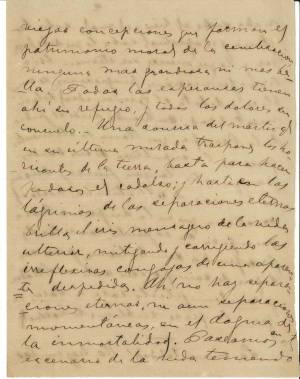 viejas concepciones que forman el
patrimonio moral de la civilización
ninguna mas grandiosa ni mas be-
lla. Todas las esperanzas tienen
ahí su refugio, y todos los dolores su
consuelo. Una sonrisa del mártir, q'
en su última mirada traspone los ho-
rizontes de la tierra, basta para hacer
pedazos el cadalso; y hasta en las
lágrimas de las separaciones eternas
brilla el iris mensagero de la vida
ulterior, mitigando y corrigiendo las
irreflexivas congojas de una aparen-
te despedida. Ahí no hay separa-
ciones eternas, ni aun separaciones
momentáneas, en el dogma de
la inmortalidad. Pasamos en
escenario de la vida